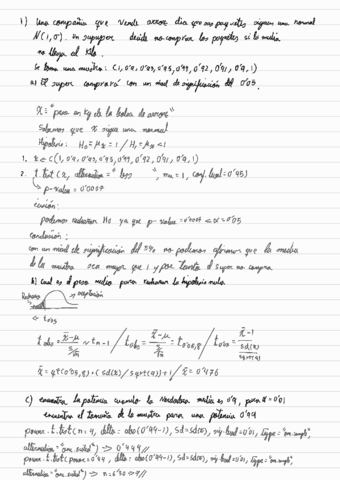 1) Una compañia que vende arroz dice que sus paquetes siguen una normal
N(1,σ). Un supuper decide no comprar los paquetes si la media
no llega al kilo.
Se toma una muestra: (1, 0'9, 0'93, 0'95, 0'99, 0'92, 0'91, 0'9, 1)
a) El super comprará con un nivel de significación del 0'05.
x ≡ "peso en kg de la bolsa de arroz"
Sabemos que x sigue una normal
Hipótesis: H0 = μx = 1 / H1 = μx < 1
1. x ← c(1, 0'9, 0'93, 0'95, 0'99, 0'92, 0'91, 0'9, 1)
2. t.test(x, alternative = "less", mu=1, conf.level=0'95)
p-value = 0'0007
podemos rechazar H0 ya que p-value = 0'0007 < α = 0'05
conclusión:
con un nivel de significación del 5% no podemos afirmar que la media
de la muestra sea mayor que 1 y por tanto el super no compra
b) cual es el peso medio para rechazar la hipotesis nula.
Rechazo aceptación
t0'05
tobs = x̄-μ / s/√n ~ tn-1 / tobs = x̄-μ / s/√n = t0'05,8 / t0'05 = x̄-1 / sd(x)/sqrt(9)
x̄ = qt(0'05,8)·(sd(x)/sqrt(9))+1 / x̄ = 0'976
c) encuentra la potencia cuando la verdadera media es 0'9, para α = 0'01
encuentra el tamaño de la muestra para una potencia 0'99
power.t.test(n=9, delta=abs(0'99-1), sd=sd(x), sig.level=0'01, type="one.sample",
alternative="one.sided") → 0'999//
power.t.test(power=0'99, delta=abs(0'99-1), sd=sd(x), sig.level=0'01, type="one.sample",
alternative="one.sided") →